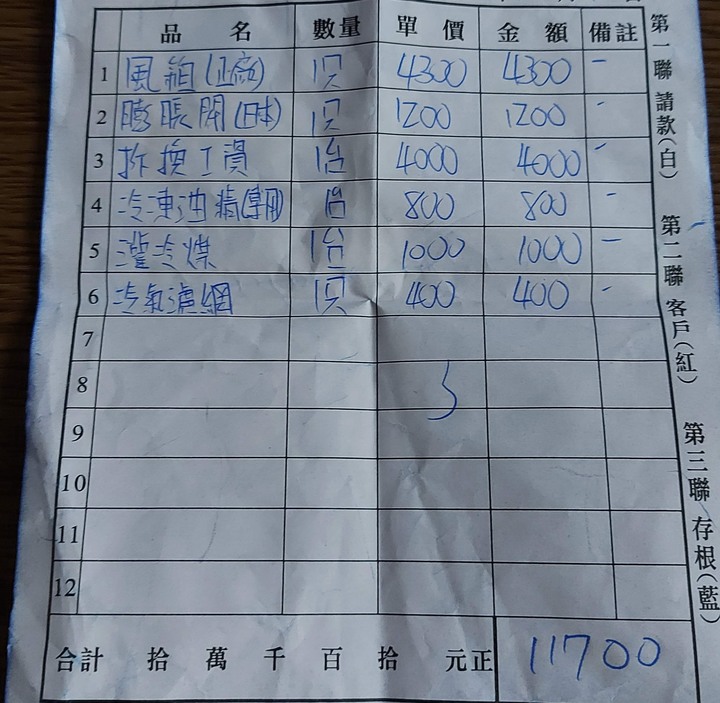 品 名 數量 單 價 金 額 備註
1 風箱(正廠) 1只 4300 4300 -
2 膨脹閥(日本) 1只 1200 1200 -
3 拆換工資 1台 4000 4000 -
4 冷凍油 精(專用) 1台 800 800 -
5 灌冷煤 1台 1000 1000 -
6 冷氣濾網 1只 400 400 -
7
8
9
10
11
12
合計 拾 萬 千 百 拾 元正 11700
第一聯 請款(白)
第二聯 客戶(紅)
第三聯 存根(藍)